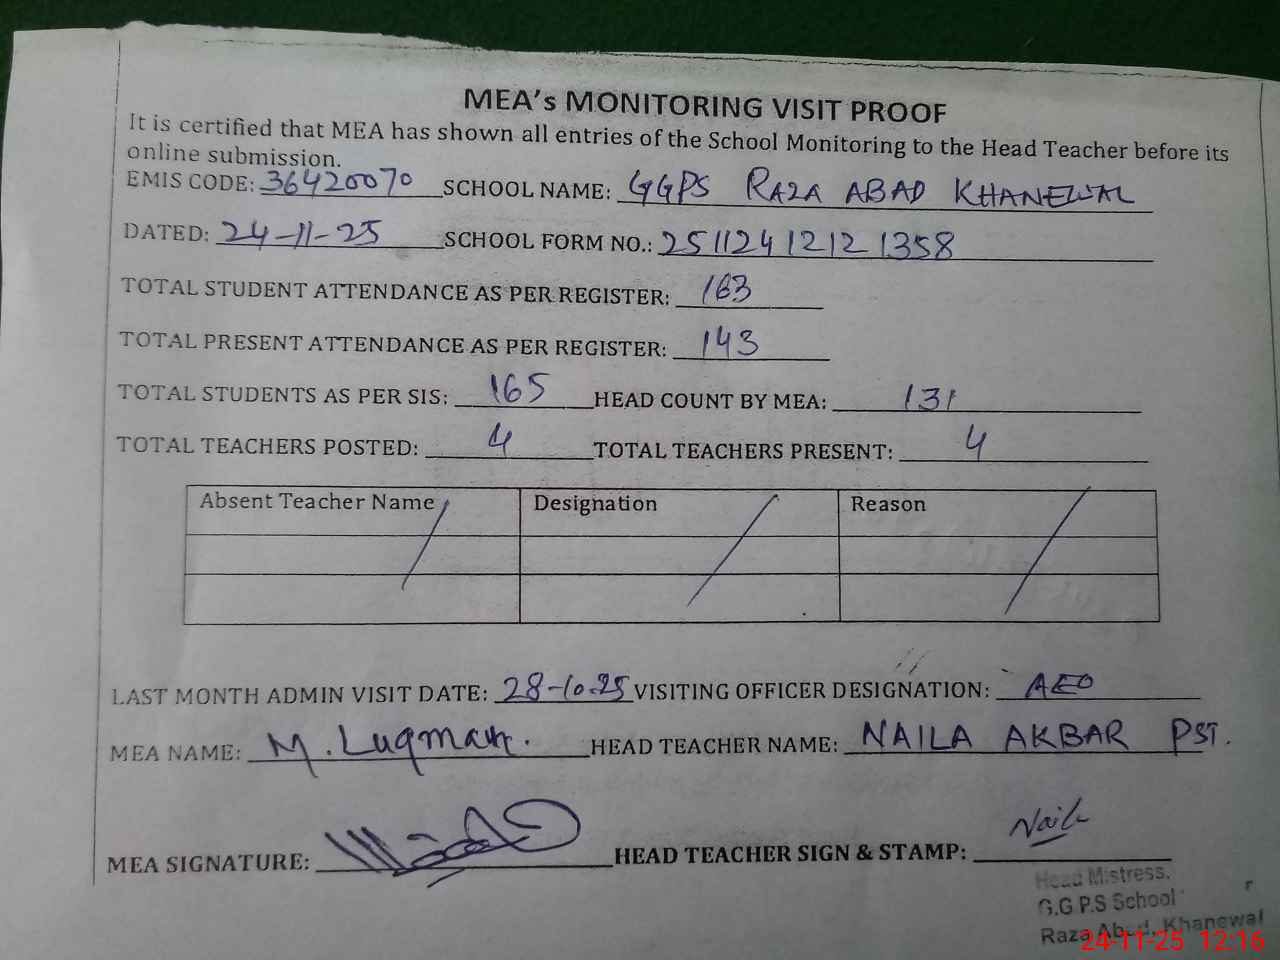 MEA's MONITORING VISIT PROOF
It is certified that MEA has shown all entries of the School Monitoring to the Head Teacher before its
online submission.
EMIS CODE: 36420070 SCHOOL NAME: GGPS RAZA ABAD KHANEWAL
DATED: 24-11-25 SCHOOL FORM NO.: 25112412121358
TOTAL STUDENT ATTENDANCE AS PER REGISTER: 163
TOTAL PRESENT ATTENDANCE AS PER REGISTER: 143
TOTAL STUDENTS AS PER SIS: 165 HEAD COUNT BY MEA: 131
TOTAL TEACHERS POSTED: 4 TOTAL TEACHERS PRESENT: 4
Absent Teacher Name Designation Reason
LAST MONTH ADMIN VISIT DATE: 28-10-25 VISITING OFFICER DESIGNATION: AEO
MEA NAME: M. Luqman. HEAD TEACHER NAME: NAILA AKBAR PST.
MEA SIGNATURE: HEAD TEACHER SIGN & STAMP: Naila
Head Mistress.
G.G P.S School
Raza Abad, Khanewal
24-11-25 12:16